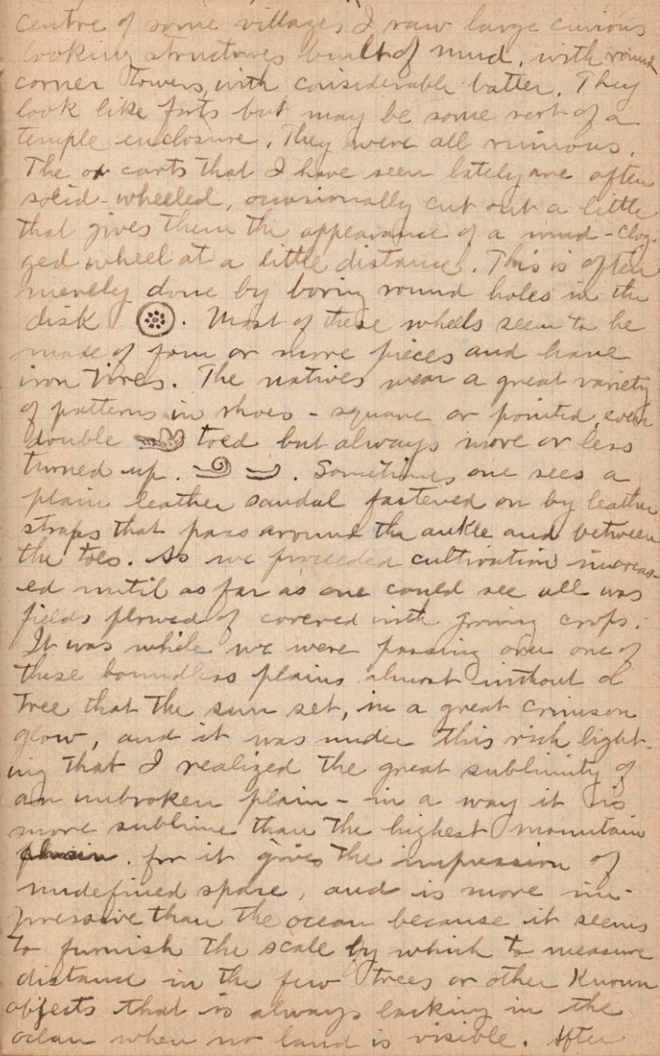 centre of some villages I saw large curious
looking structures built of mud, with round
corner towers, with considerable batter. They
look like forts but may be some sort of a
temple enclosure. They were all ruinous.
The ox carts that I have seen lately are often
solid-wheeled, occasionally cut out a little
that gives them the appearance of a mud-clog-
ged wheel at a little distance. This is often
merely done by boring round holes in the
disk . Most of these wheels seem to be
made of four or more pieces and have
iron tires. The natives wear a great variety
of patterns in shoes - square or pointed, even
double toed but always more or less
turned up. . Sometimes one sees a
plain leather sandal fastened on by leather
straps that pass around the ankle and between
the toes. As we proceeded cultivation increas-
ed until as far as one could see all was
fields plowed of covered with growing crops.
It was while we were passing over one of
these boundless plains almost without a
tree that the sun set, in a great crimson
glow, and it was under this rich light-
ing that I realized the great sublimity of
an unbroken plain - in a way it is
more sublime than the highest mountain
for it gives the impression of
undefined space, and is more im-
pressive than the ocean because it seems
to furnish the scale by which to measure
distance in the few trees or other known
objects that is always lacking in the
ocean when no land is visible. After